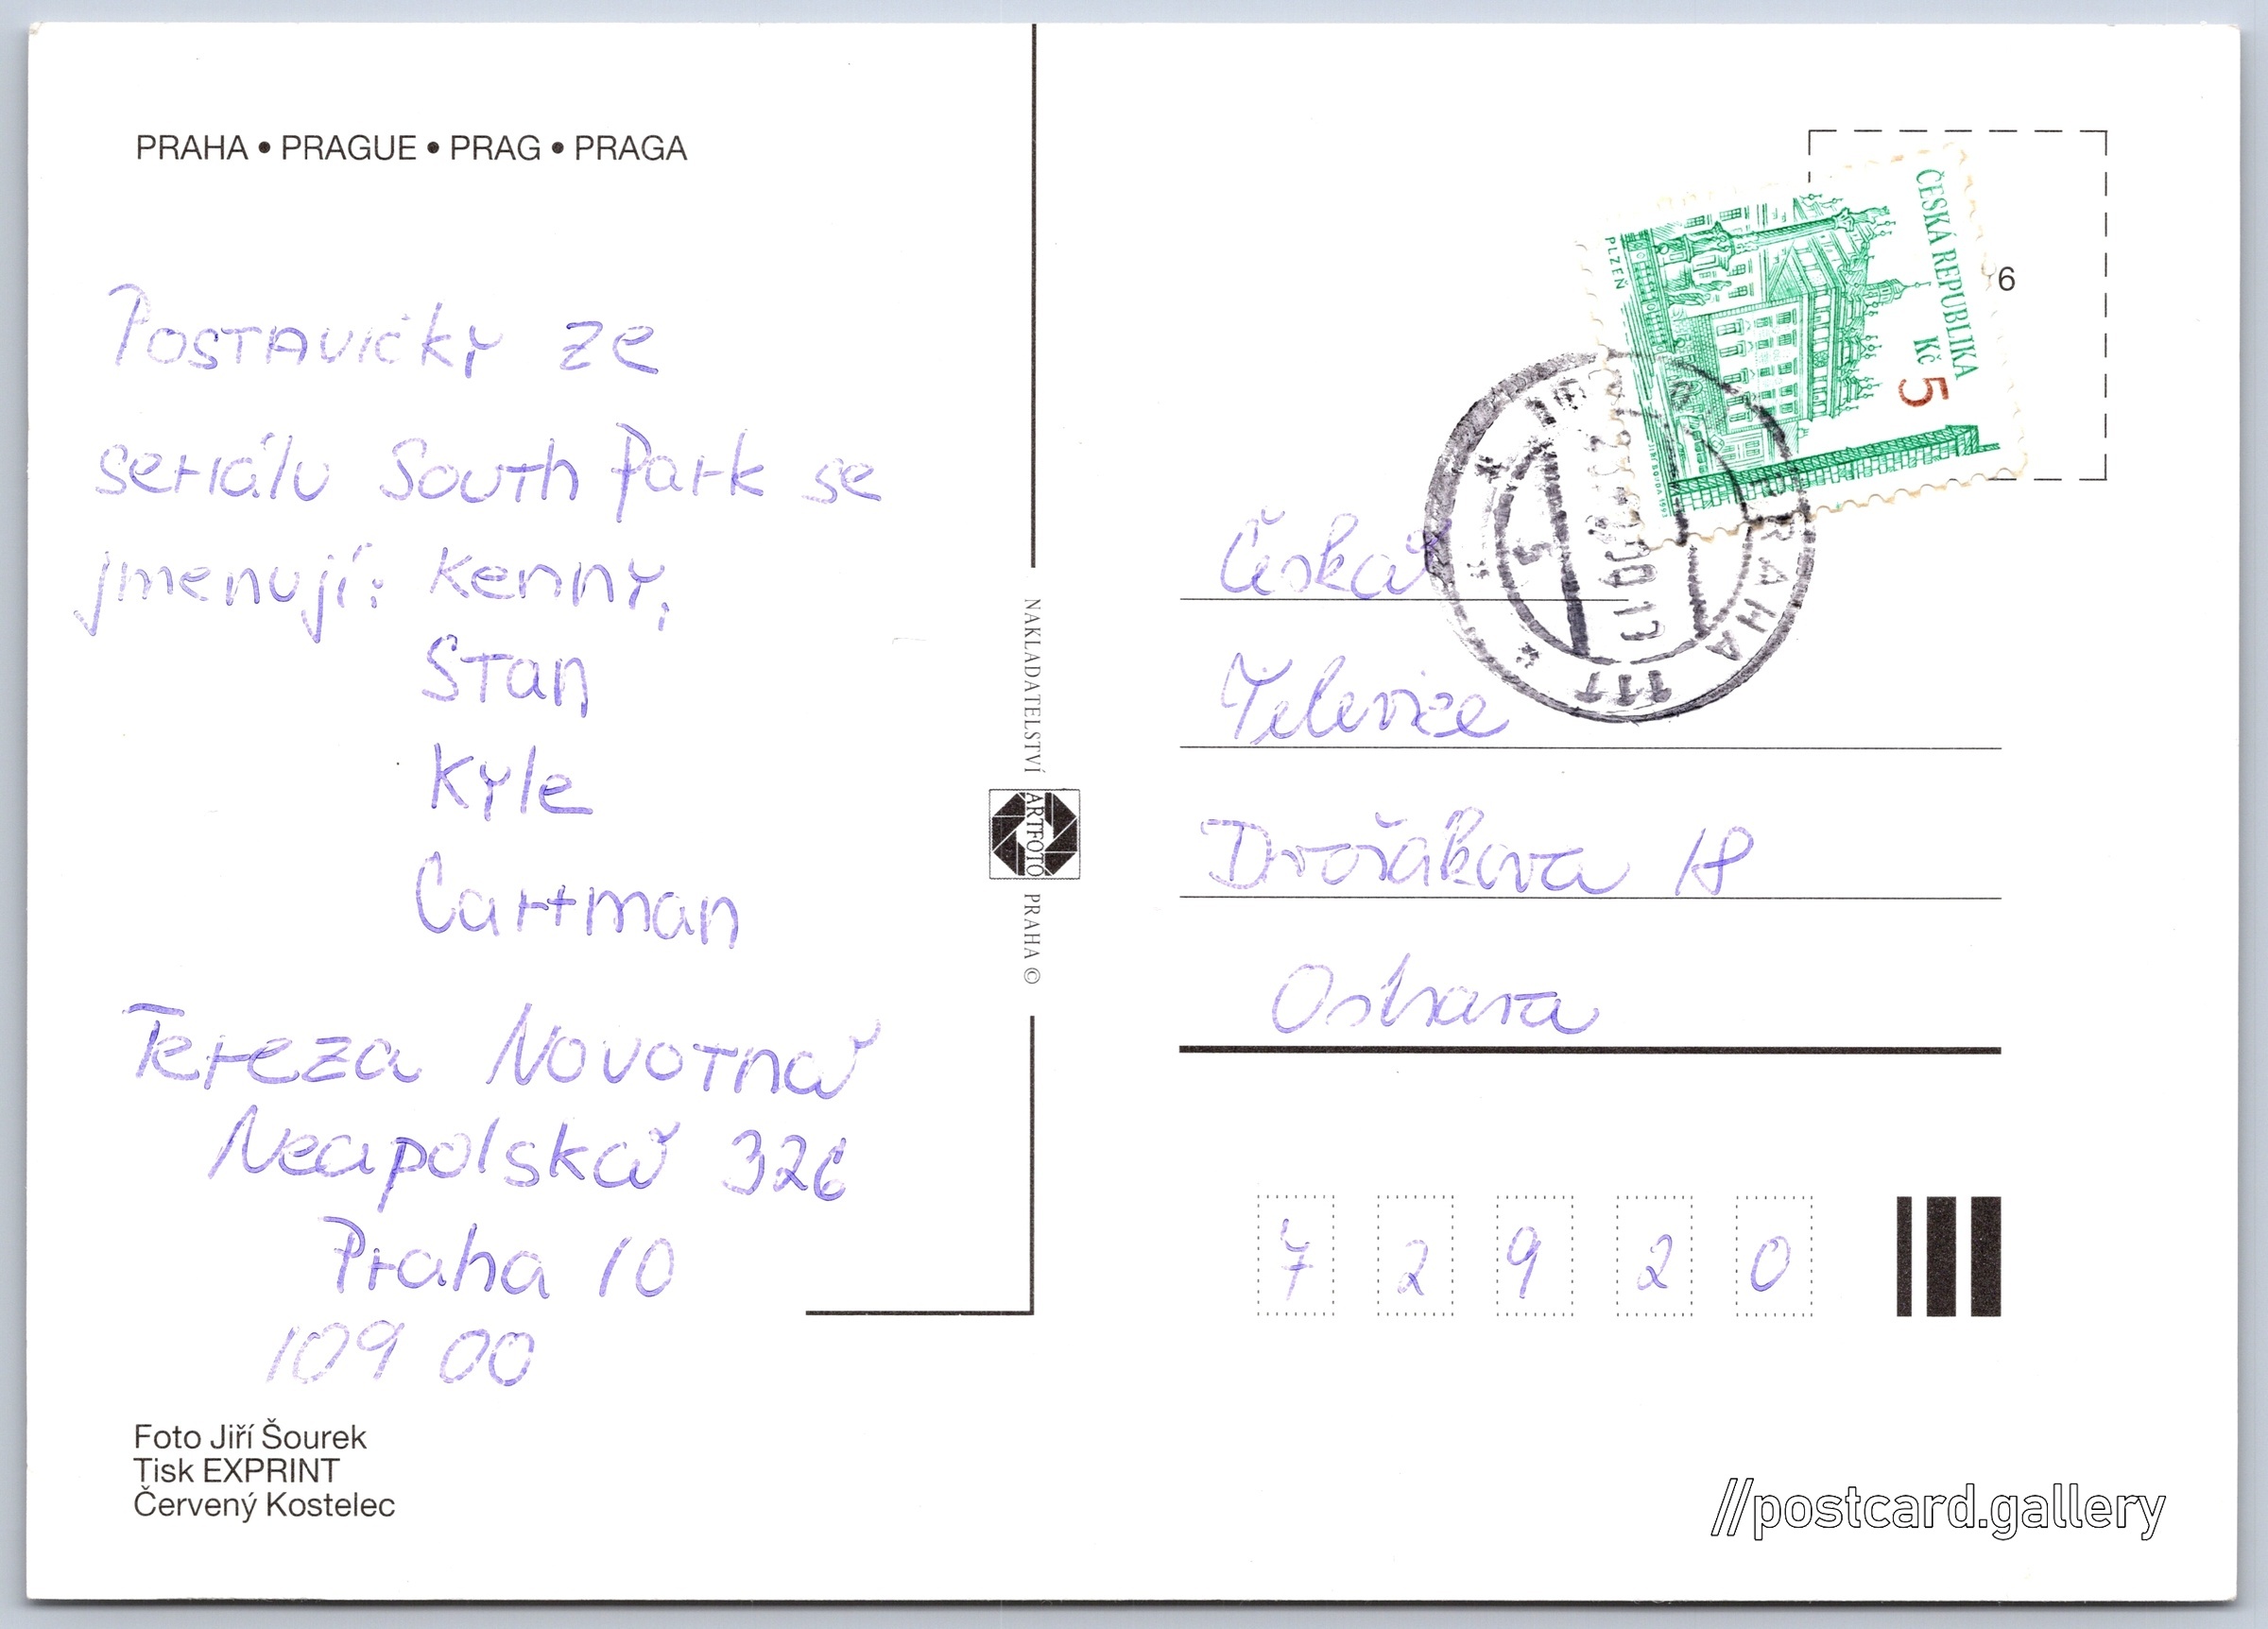 PRAHA • PRAGUE • PRAG • PRAGA
Postavičky ze
seriálu South Park se
jmenují: Kenny,
Stan
Kyle
Cartman
Tereza Novotná
Neapolská 326
Praha 10
109 00
Foto Jiří Šourek
Tisk EXPRINT
Červený Kostelec
NAKLADATELSTVÍ ARTFOTO PRAHA ©
ČESKÁ REPUBLIKA
Kč 5
PLZEŇ
6
PRAHA
Česká
Televize
Dvořákova 18
Ostrava
7 2 9 2 0
//postcard.gallery